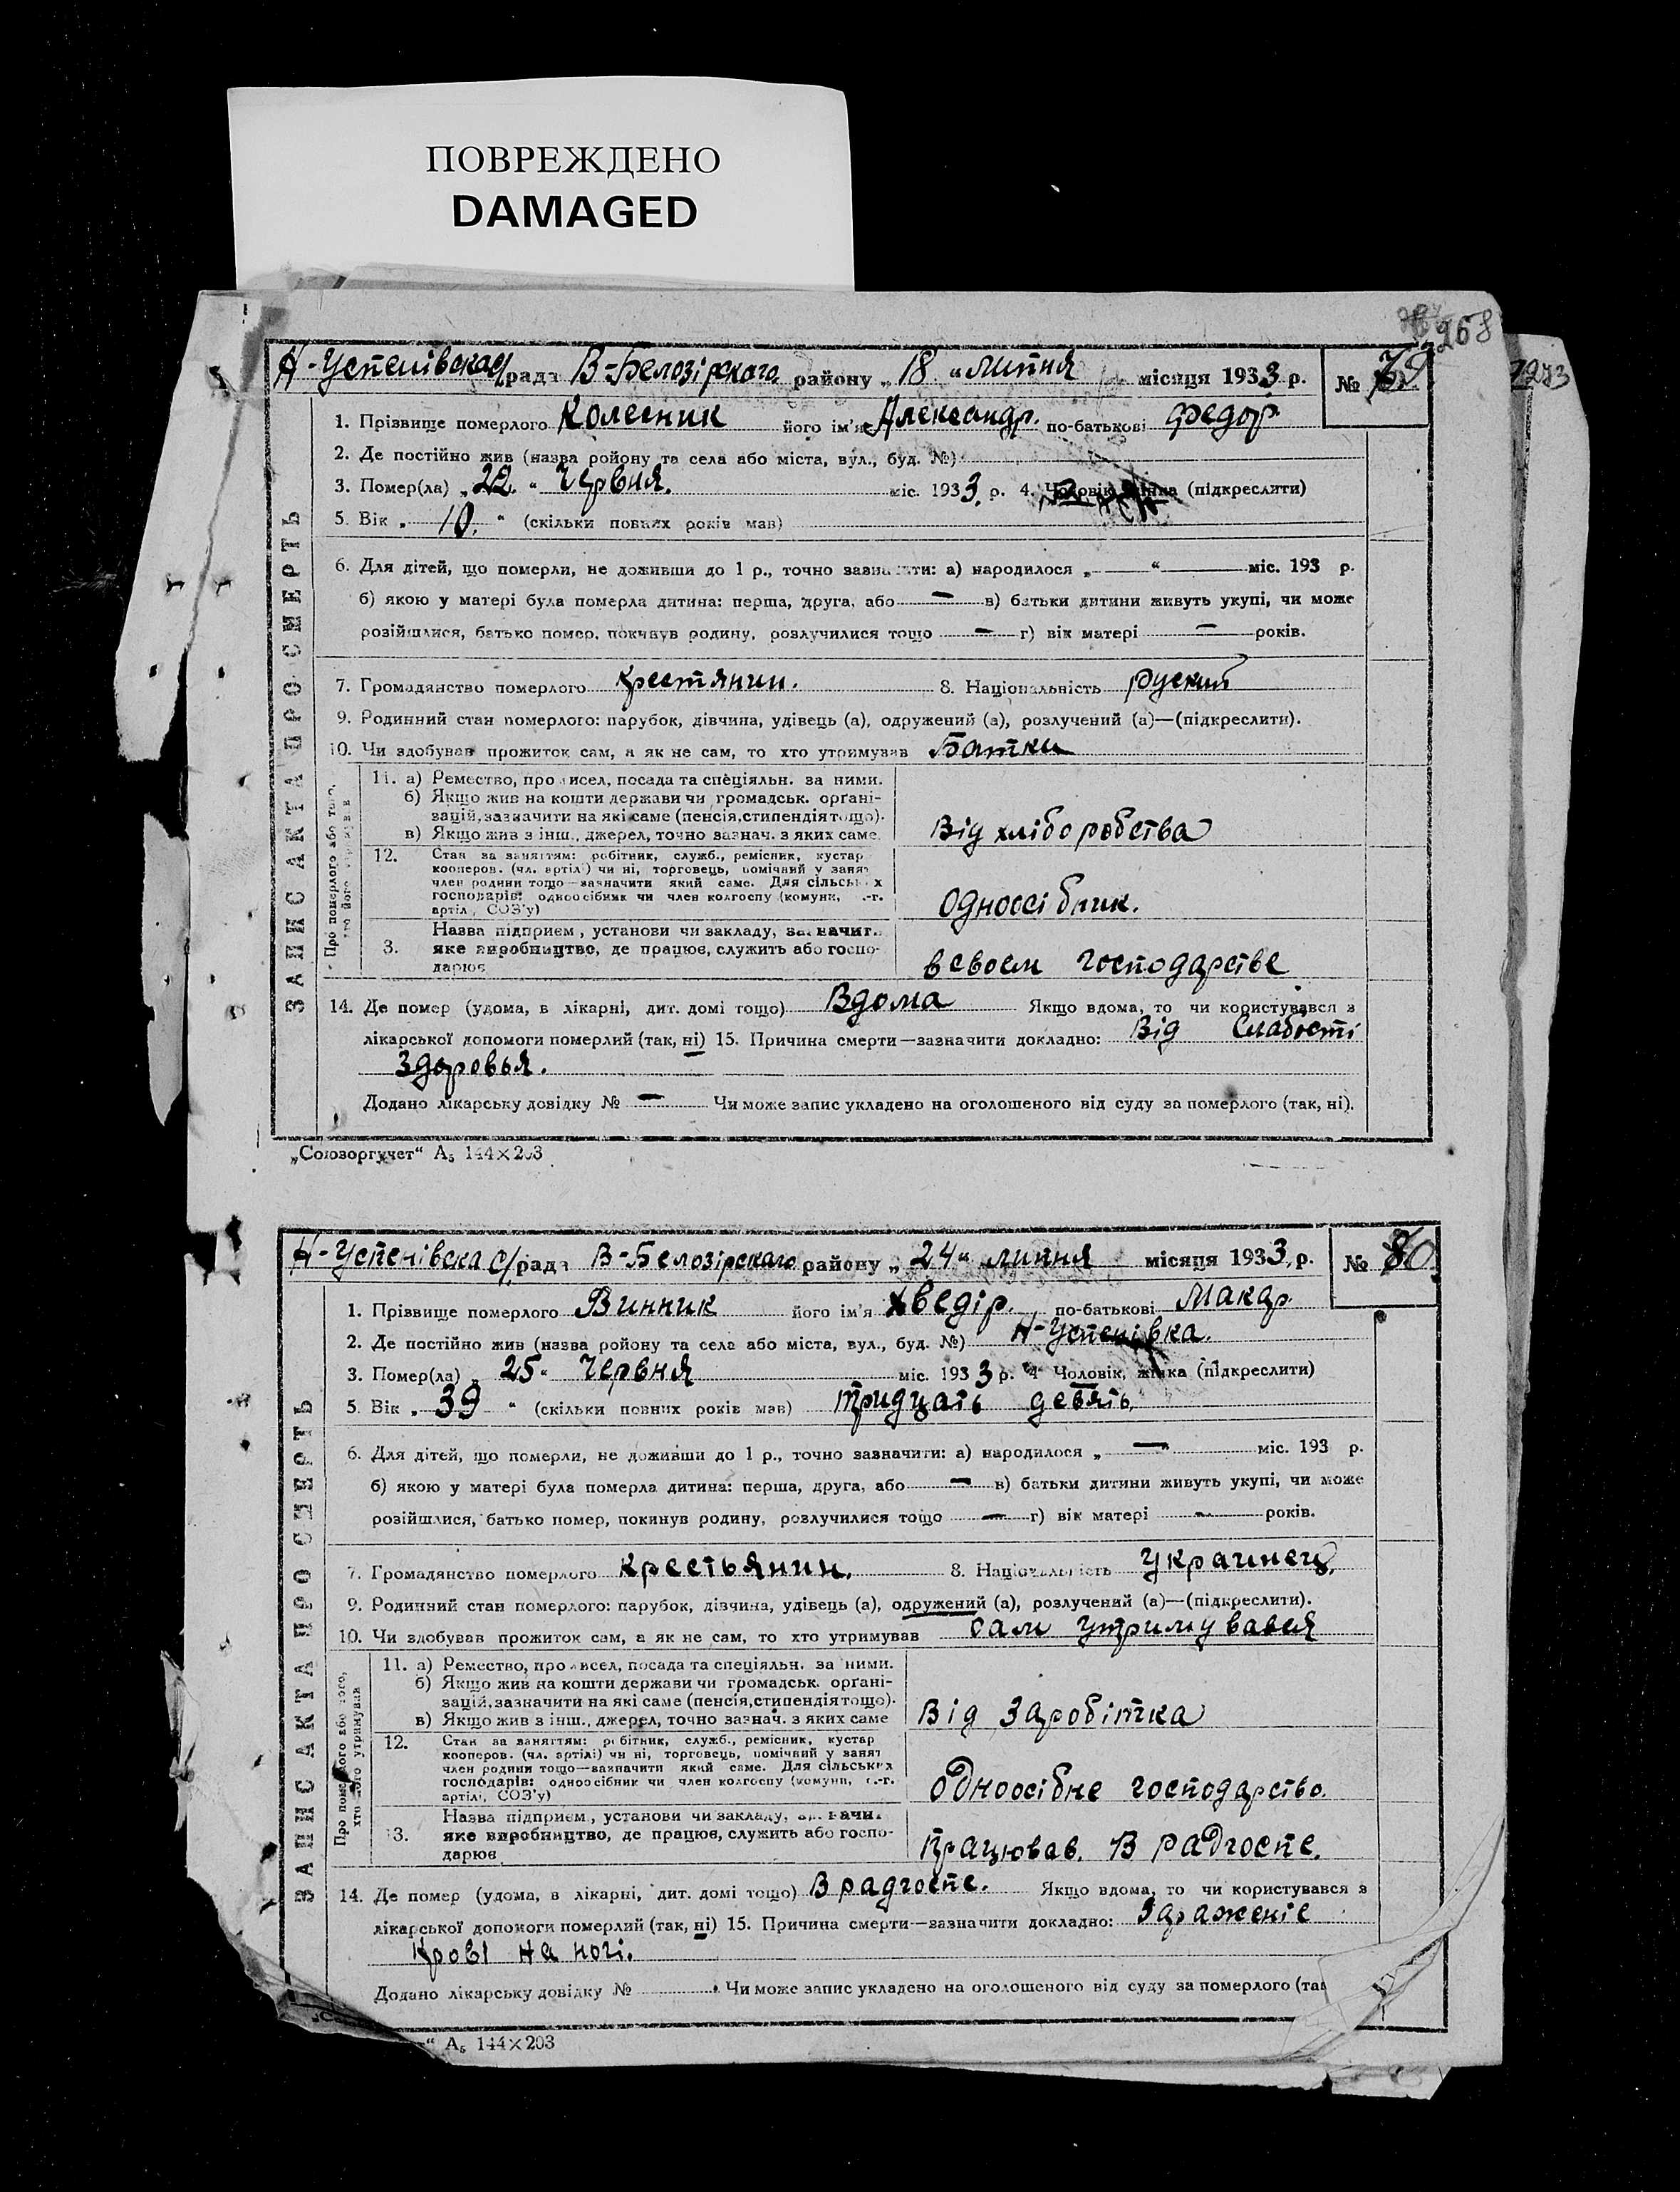 ПОВРЕЖДЕНО
DAMAGED
268
1273
Н-Успенівская с/рада В-Белозірского району „18“ липня місяця 1933 р. № 79
1. Прізвище померлого Колесник його ім'я Александр. по-батькові Федор.
2. Де постійно жив (назва ройону та села або міста, вул., буд. №)
3. Помер(ла) „22“ Червня. міс. 1933. р. 4. Чоловік, жінка (підкреслити)
5. Вік „10.“ (скільки повних років мав)
6. Для дітей, що померли, не доживши до 1 р., точно зазначити: а) народилося „—“ — міс. 193 р.
б) якою у матері була померла дитина: перша, друга, або — в) батьки дитини живуть укупі, чи може
розійшлися, батько помер, покинув родину, розлучилися тощо — г) вік матері — років.
7. Громадянство померлого крестянин. 8. Національність руский
9. Родинний стан померлого: парубок, дівчина, удівець (а), одружений (а), розлучений (а)—(підкреслити).
10. Чи здобував прожиток сам, а як не сам, то хто утримував Батки
11. а) Ремество, промисел, посада та спеціяльн. за ними.
б) Якщо жив на кошти держави чи громадськ. орґані-
зацій, зазначити на які саме (пенсія, стипендія тощо).
в) Якщо жив з інш., джерел, точно зазнач. з яких саме. Від хліборобства
12. Стан за заняттям: робітник, служб., ремісник, кустар
кооперов. (чл. артілі) чи ні, торговець, помічний у занят
член родини тощо—зазначити який саме. Для сільських
господарів: одноосібник чи член колгоспу (комуни, с.-г.
артілі, СОЗ'у) одноосібник.
13. Назва підприєм., установи чи закладу, зазначит.
яке виробництво, де працює, служить або госпо-
дарює в своем господарстве
14. Де помер (удома, в лікарні, дит. домі тощо) Вдома Якщо вдома, то чи користувався з
лікарської допомоги померлий (так, ні) 15. Причина смерти—зазначити докладно: Від Слабості
Здоровья.
Додано лікарську довідку № — Чи може запис укладено на оголошеного від суду за померлого (так, ні).
ЗАПИС АКТА ПРО СМЕРТЬ
Про померлого або того,
хто його утримував
„Союзоргучет“ А₅ 144×203
Н-Успенівска с/рада В-Белозірскаго району „24“ липня місяця 1933, р. № 80
1. Прізвище померлого Винник його ім'я Хведір. по-батькові Макар.
2. Де постійно жив (назва ройону та села або міста, вул., буд. №) Н-Успенівка.
3. Помер(ла) „25“ Червня міс. 1933 р. 4 Чоловік, жінка (підкреслити)
5. Вік „39“ (скільки повних років мав) тридцать девять.
6. Для дітей, що померли, не доживши до 1 р., точно зазначити: а) народилося „— міс. 193 р.
б) якою у матері була померла дитина: перша, друга, або — в) батьки дитини живуть укупі, чи може
розійшлися, батько помер, покинув родину, розлучилися тощо — г) вік матері — років.
7. Громадянство померлого крестьянин. 8. Національність украинец.
9. Родинний стан померлого: парубок, дівчина, удівець (а), одружений (а), розлучений (а)—(підкреслити).
10. Чи здобував прожиток сам, а як не сам, то хто утримував сам утримувався
11. а) Ремество, промисел, посада та спеціяльн. за ними.
б) Якщо жив на кошти держави чи громадськ. орґані-
зацій, зазначити на які саме (пенсія, стипендія тощо).
в) Якщо жив з інш., джерел, точно зазнач. з яких саме Від Заробітка
12. Стан за заняттям: робітник, служб., ремісник, кустар
кооперов. (чл. артілі) чи ні, торговець, помічний у занят
член родини тощо—зазначити який саме. Для сільських
господарів: одноосібник чи член колгоспу (комуни, с.-г.
артілі, СОЗ'у) одноосібне господарство.
13. Назва підприєм., установи чи закладу, зазначи.
яке виробництво, де працює, служить або госпо-
дарює працював. В радгоспе.
14. Де помер (удома, в лікарні, дит. домі тощо) В радгоспе. Якщо вдома, то чи користувався з
лікарської допомоги померлий (так, ні) 15. Причина смерти—зазначити докладно: Зараженіе
крові на ногі.
Додано лікарську довідку № Чи може запис укладено на оголошеного від суду за померлого (так
ЗАПИС АКТА ПРО СМЕРТЬ
Про померлого або того,
хто його утримував
“ А₅ 144×203